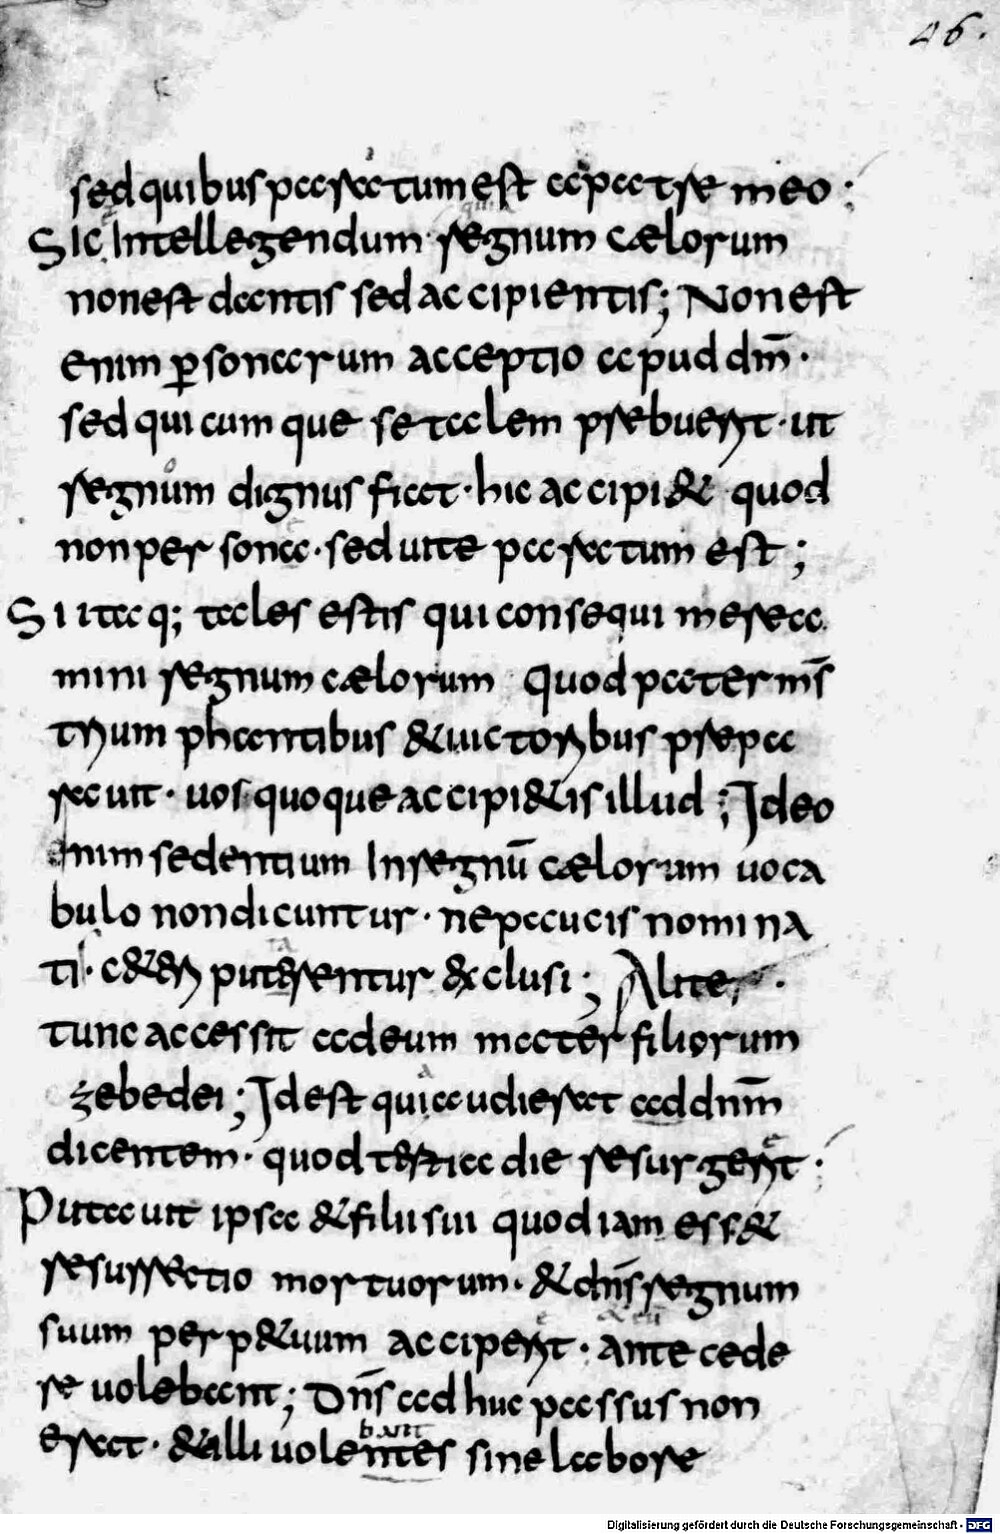 46.
sed quibus paratum est a patre meo :
Sic Intellegendum · regnum cælorum
non est dantis sed accipientis ; Non est
enim p̲sonarum acceptio apud dm̄ ·
sed quicumque se talem prebuerit · ut
regnum dignus fiat · hic accipi& quod
non persone · sed uite paratum est ;
Si itaq; tales estis qui consequi merea
mini regnum cælorum quod pater ms̄
trium phantibus & uictoribus prepa
rauit · uos quoque accipi&is illud ; Ideo
enim sedentium In regnū cælorum uoca
bulo non dicuntur · ne paucis nomina
ti · c&eri putarentur &xclusi ; Aliter ·
tunc accessit ad eum mater filiorum
zebedei ; Id est quia audierat ad dnm̄
dicentem · quod tertia die resurgeret :
Putauit ipsa & filii sui quod iam ess&
resurrectio mortuorum · & dns̄ regnum
suum perp&uum acciperet · antecede
re uolebant ; Dns̄ ad huc passus non
bant
erat · & illi uolentes sine labore